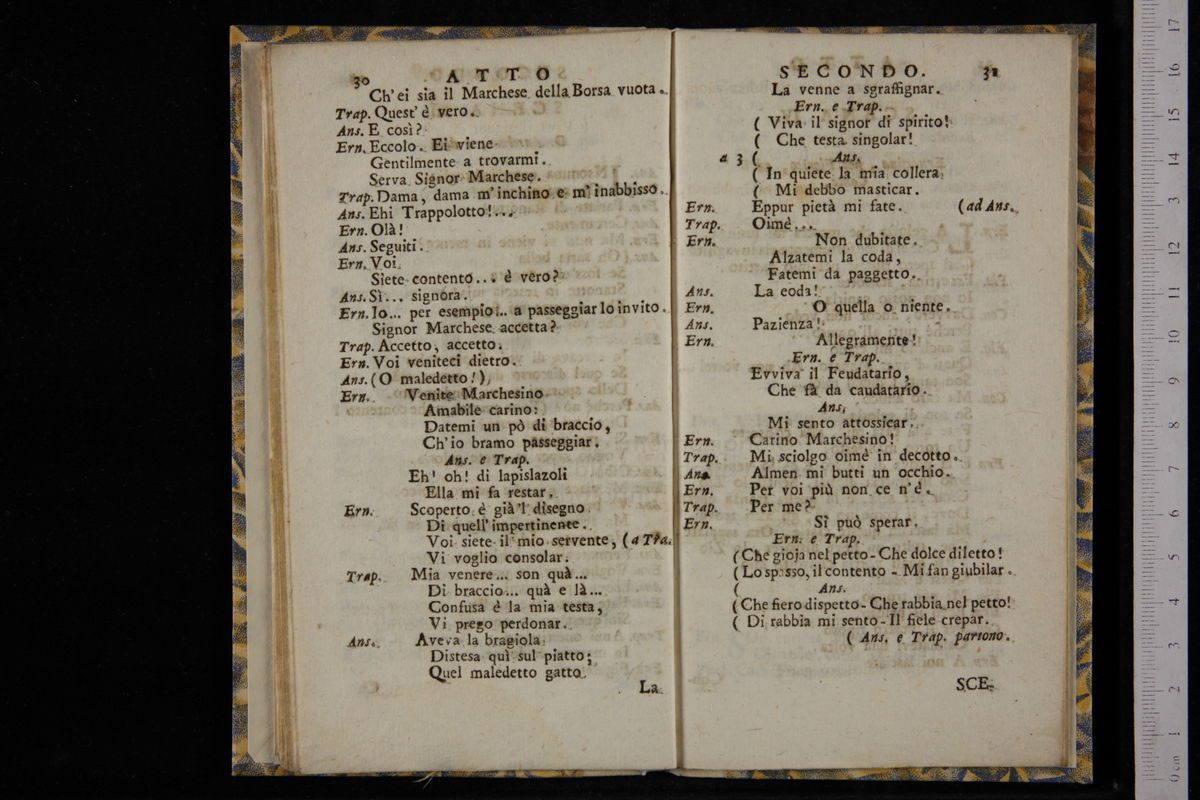 30 ATTO
Ch'ei sia il Marchese della Borsa vuota.
Trap. Quest' è vero.
Ans. E così?
Ern. Eccolo. Ei viene
Gentilmente a trovarmi.
Serva Signor Marchese.
Trap. Dama, dama m'inchino e m'inabbisso.
Ans. Ehi Trappolotto!...
Ern. Olà!
Ans. Seguiti.
Ern. Voi
Siete contento... è vero?
Ans. Sì... signora.
Ern. Io... per esempio... a passeggiar lo invito.
Signor Marchese accetta?
Trap. Accetto, accetto.
Ern. Voi veniteci dietro.
Ans. (O maledetto!)
Ern. Venite Marchesino
Amabile carino:
Datemi un pò di braccio,
Ch'io bramo passeggiar.
Ans. e Trap.
Eh! oh! di lapislazoli
Ella mi fa restar.
Ern. Scoperto è già'l disegno
Di quell' impertinente.
Voi siete il mio servente, (a Tra.
Vi voglio consolar.
Trap. Mia venere... son quà...
Di braccio... quà e là...
Confusa è la mia testa,
Vi prego perdonar.
Ans. Aveva la bragiola
Distesa quì sul piatto;
Quel maledetto gatto
La
SECONDO. 31
La venne a sgraffignar.
Ern. e Trap.
( Viva il signor di spirito!
( Che testa singolar!
a 3 ( Ans.
( In quiete la mia collera
( Mi debbo masticar.
Ern. Eppur pietà mi fate. (ad Ans.
Trap. Oimè...
Ern. Non dubitate.
Alzatemi la coda,
Fatemi da paggetto.
Ans. La coda!
Ern. O quella o niente.
Ans. Pazienza!
Ern. Allegramente!
Ern. e Trap.
Evviva il Feudatario,
Che fà da caudatario.
Ans.
Mi sento attossicar.
Ern. Carino Marchesino!
Trap. Mi sciolgo oimè in decotto.
Ans. Almen mi butti un occhio.
Ern. Per voi più non ce n'è.
Trap. Per me?
Ern. Sì può sperar.
Ern. e Trap.
( Che gioja nel petto - Che dolce diletto!
( Lo spasso, il contento - Mi fan giubilar.
( Ans.
( Che fiero dispetto - Che rabbia nel petto!
( Di rabbia mi sento - Il fiele crepar.
( Ans. e Trap. partono.
SCE-